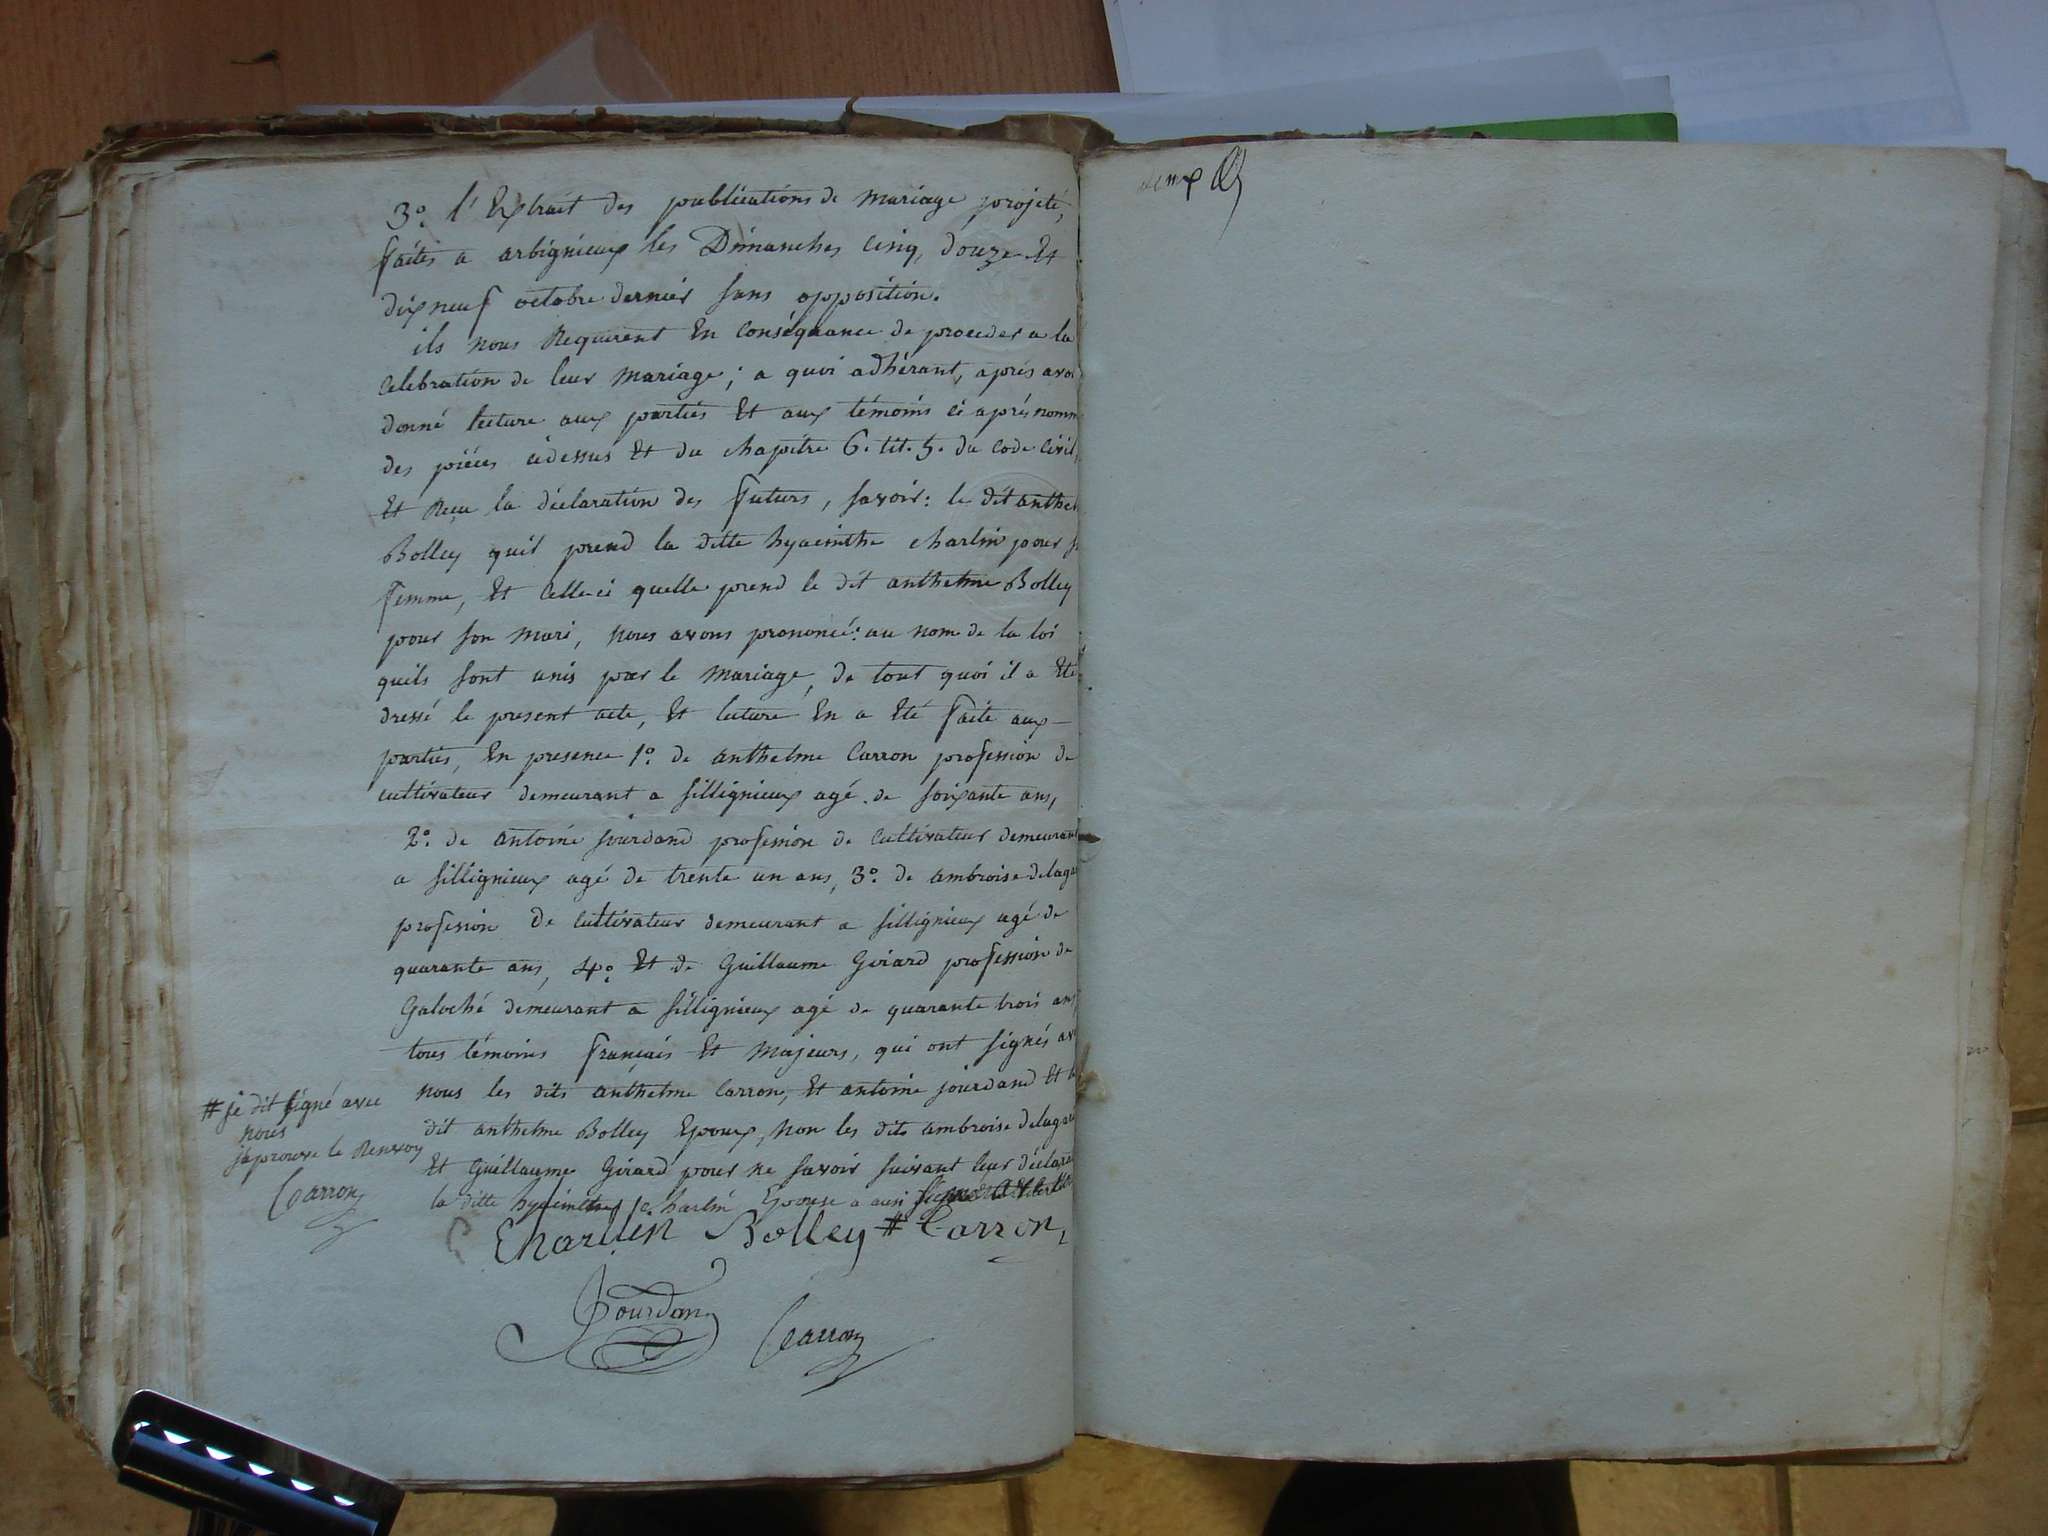 3º. l'Extrait des publications de mariage projeté,
faites a arbignieux les Dimanches cinq, douze Et
dixneuf octobre dernier sans opposition.
ils nous Requirent En conséquance de proceder a la
celebration de leur mariage; a quoi adhérant, aprés avoi
donné lecture aux partiés Et aux témoins ci aprés nomm
des piéces cidessus Et du chapitre 6. tit. 5. du code civil,
Et Reçu la déclaration des futurs, savoir: le dit anthel
Bolley quil prend la ditte hyacinthe charlin pour s
femme, Et celle-ci quelle prend le dit anthelme Bolley
pour son mari, nous avons prononcé: au nom de la loi
quils sont unis par le mariage, de tout quoi il a Eté
dressé le present acte, Et lecture En a Eté faite aux
parties, En presence 1º. de anthelme Carron profession de
cultivateur demeurant a sillignieux agé de soixante ans,
2º. de antoine jourdand profession de cultivateur demeurant
a sillignieux agé de trente un ans, 3º. de ambroise delaga
profession de cultivateur demeurant a sillignieux agé de
quarante ans, 4º. Et de Guillaume Girard profession de
Galoché demeurant a sillignieux agé de quarante trois ans
tous témoins français Et majeurs, qui ont signés av
nous les dits anthelme Carron, Et antoine jourdand Et le
dit anthelme Bolley Epoux, non les dits ambroise delaga
Et Guillaume Girard pour ne savoir suivant leur déclara
la ditte hyacinthe charlin Epouse a aussi
# je dit signé avec
nous
japrouve le Renvoy
Carron
Charlin Bolley # Carron,
Jourdan
Carron